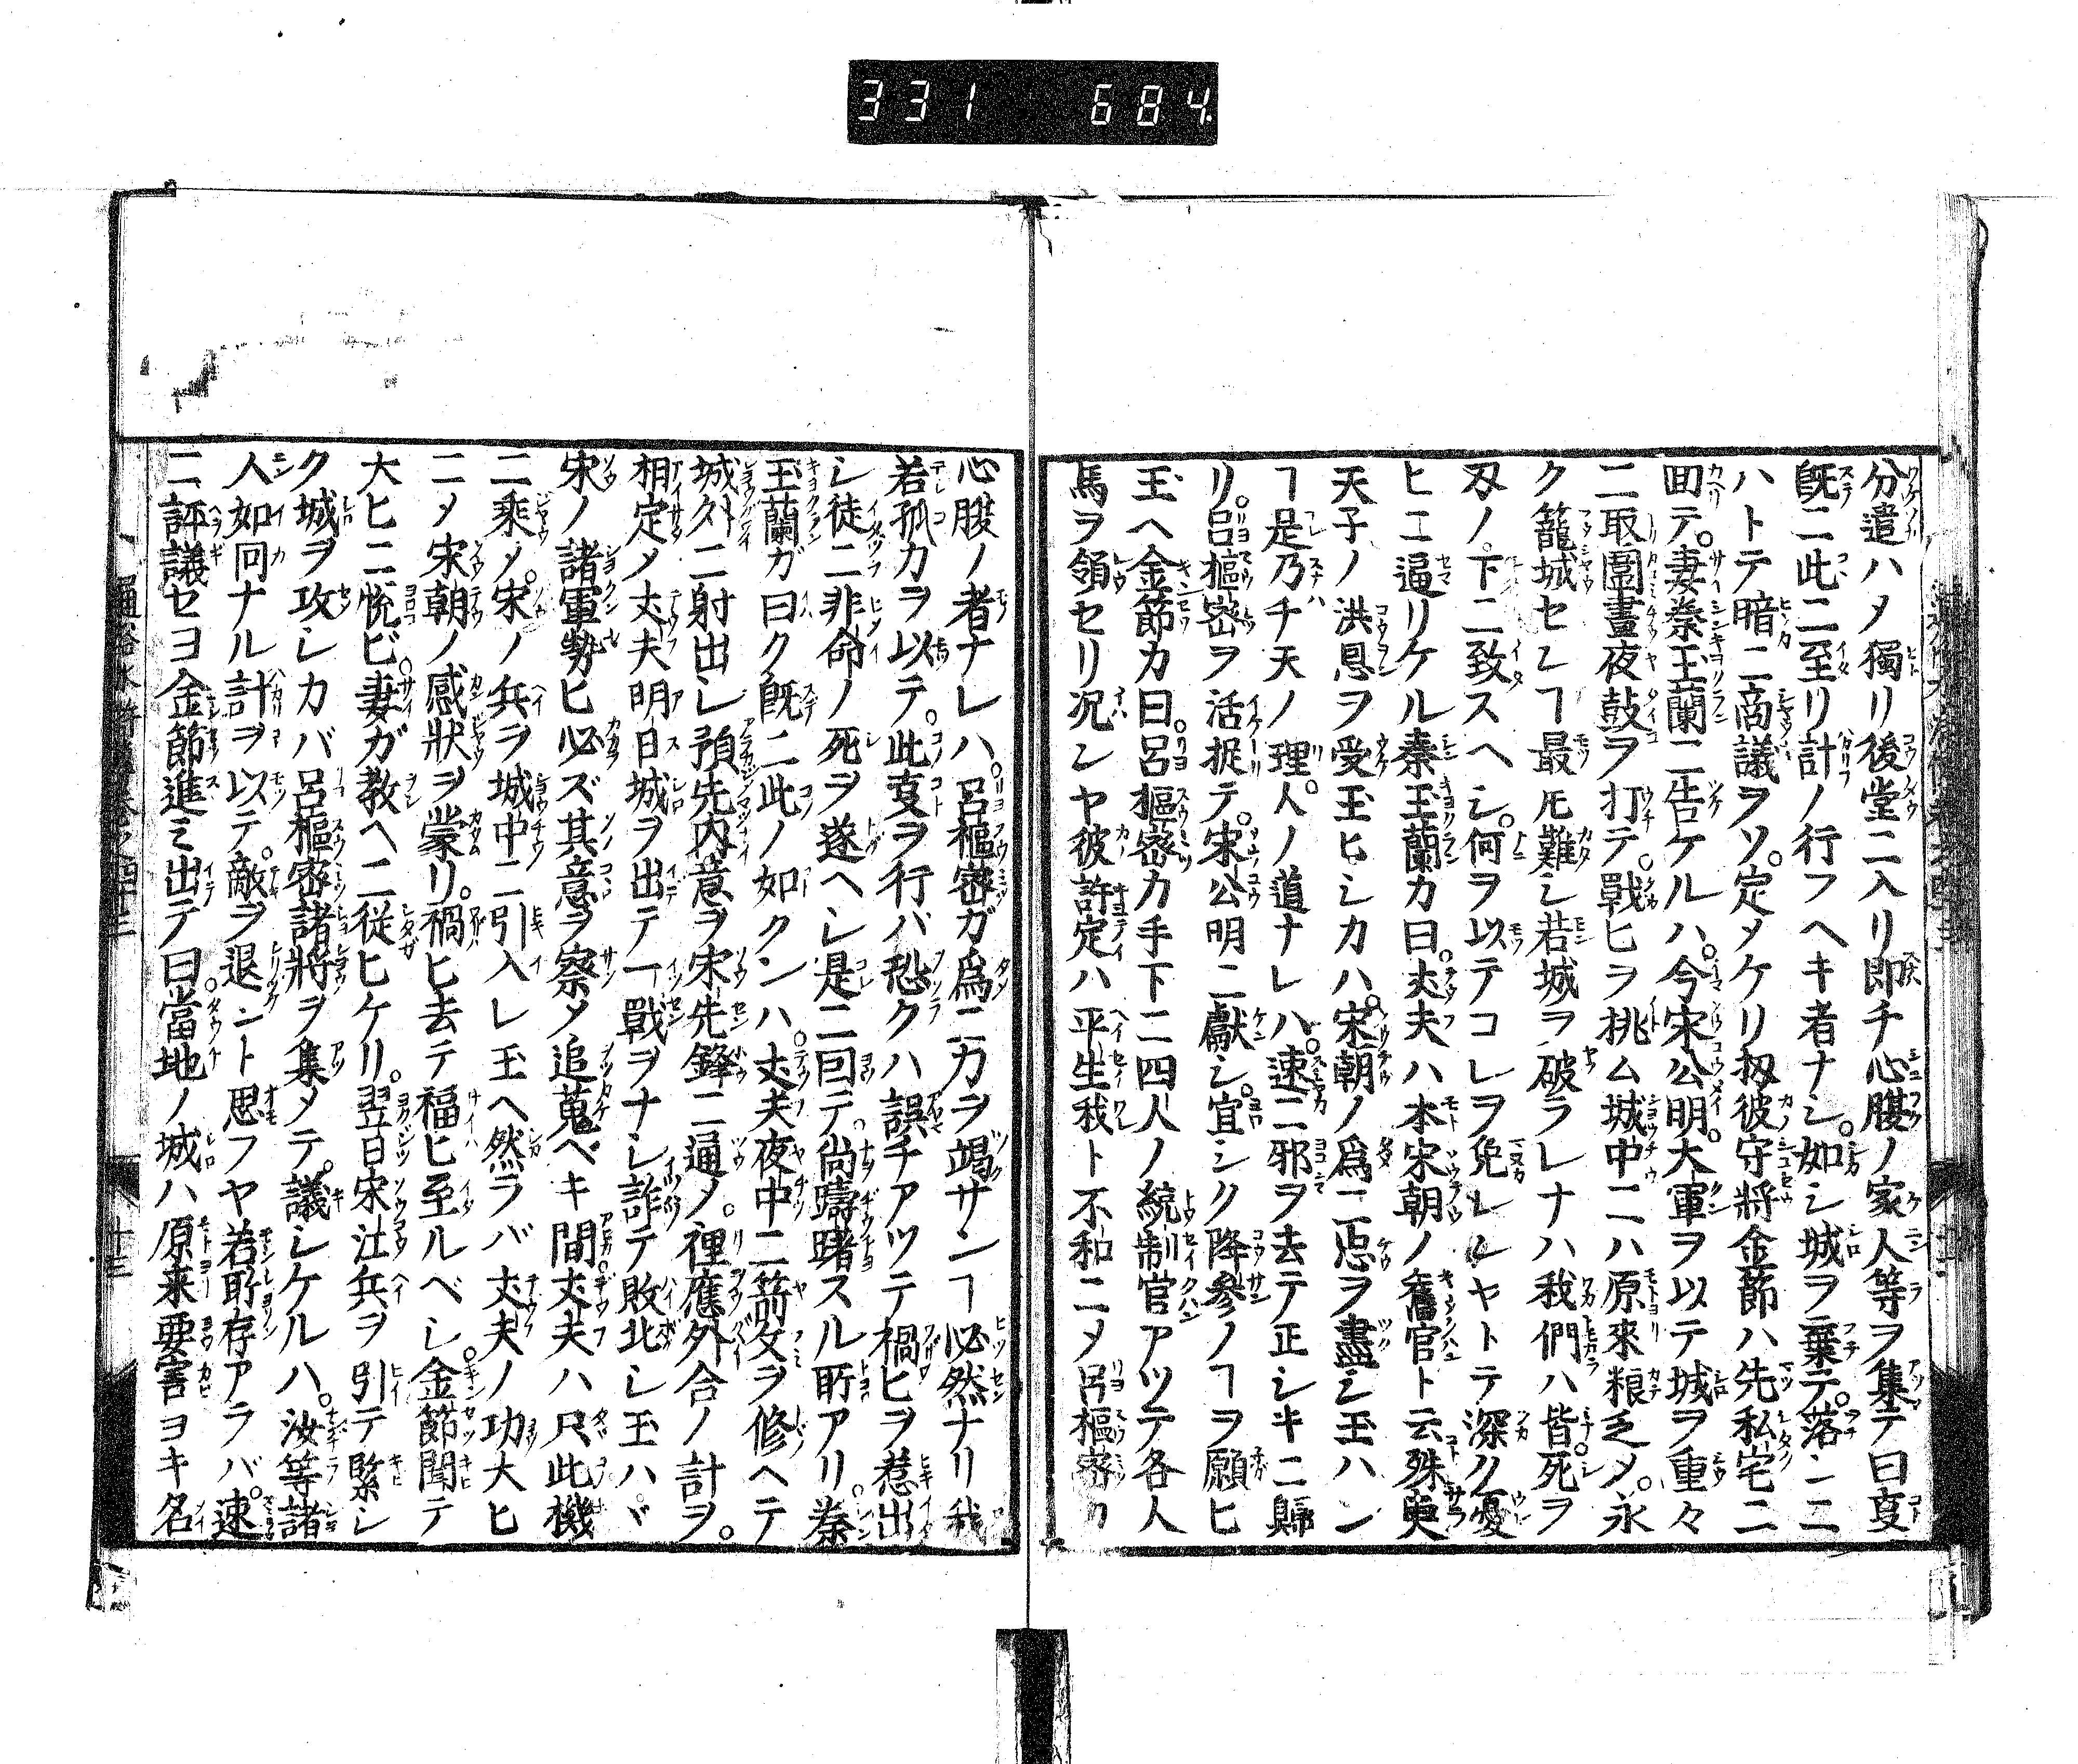 331 684
分遣ハメ獨リ後堂ニ入リ即チ心腹ノ家人等ヲ集テ曰叓
既ニ此ニ至リ計ノ行フヘキ者ナシ。如シ城ヲ棄テ。落ンニ
ハトテ暗ニ商議ヲソ。定メケリ扨彼守將金節ハ先私宅ニ
囬テ。妻秦玉蘭ニ告ケルハ。今宋公明。大軍ヲ以テ城ヲ重々
ニ取圍晝夜鼓ヲ打テ。戰ヒヲ挑ム城中ニハ原來粮乏メ。永
ク籠城セレヿ最𪜈難シ若城ヲ破ラレナハ我們ハ皆死ヲ
刄ノ。下ニ致スヘシ。何ヲ以テコレヲ免レレヤトテ深ク憂
ヒニ逼リケル秦玉蘭カ曰。𠀋夫ハ本宋朝ノ舊官ト云殊更
天子ノ洪恩ヲ受玉ヒシカハ。宋朝ノ爲ニ忠ヲ盡シ玉ハン
ヿ是乃チ天ノ理。人ノ道ナレハ。速ニ邪ヲ去テ正シキニ歸
リ。呂樞密ヲ活捉テ。宋公明ニ獻シ。宜シク降參ノヿヲ願ヒ
玉ヘ金節カ曰。呂樞密カ手下ニ四人ノ統制官アツテ各人
馬ヲ領セリ况レヤ彼許定ハ平生我ト不和ニメ呂樞密カ
心腹ノ者ナレハ。呂樞密ガ爲ニ力ヲ竭サンヿ必然ナリ我
若孤カヲ以テ。此叓ヲ行バ恐クハ誤チアツテ禍ヒヲ惹出
シ徒ニ非命ノ死ヲ遂ヘシ是ニ囙テ。尚躊躇スル所アリ。秦
玉蘭ガ曰ク既ニ此ノ如クンハ。𠀋夫夜中ニ箭文ヲ修ヘテ
城外ニ射出シ預先内意ヲ宋先鋒ニ通メ。裡應外合ノ計ヲ。
相定メ𠀋夫明日城ヲ出テ一戰ヲナシ詐テ敗北シ玉ハヾ
宋ノ諸軍勢ヒ必ズ其意ヲ察メ追蒐ベキ間。𠀋夫ハ只此機
ニ乘メ。宋ノ兵ヲ城中ニ引入レ玉ヘ然ラバ𠀋夫ノ功大ヒ
ニメ宋朝ノ感狀ヲ蒙リ。禍ヒ去テ福ヒ至ルベシ。金節聞テ
大ヒニ悦ビ。妻ガ教ヘニ從ヒケリ。翌日宋江兵ヲ引テ緊シ
ク城ヲ攻レカバ呂樞密諸將ヲ集メテ。議シケルハ。汝等諸
人如何ナル計ヲ以テ。敵ヲ退ントト思フヤ若所存アラバ。速
ニ評議セヨ金節進ミ出テ曰。當地ノ城ハ原来要害ヨキ名
通俗水滸傳卷之四十三 十三